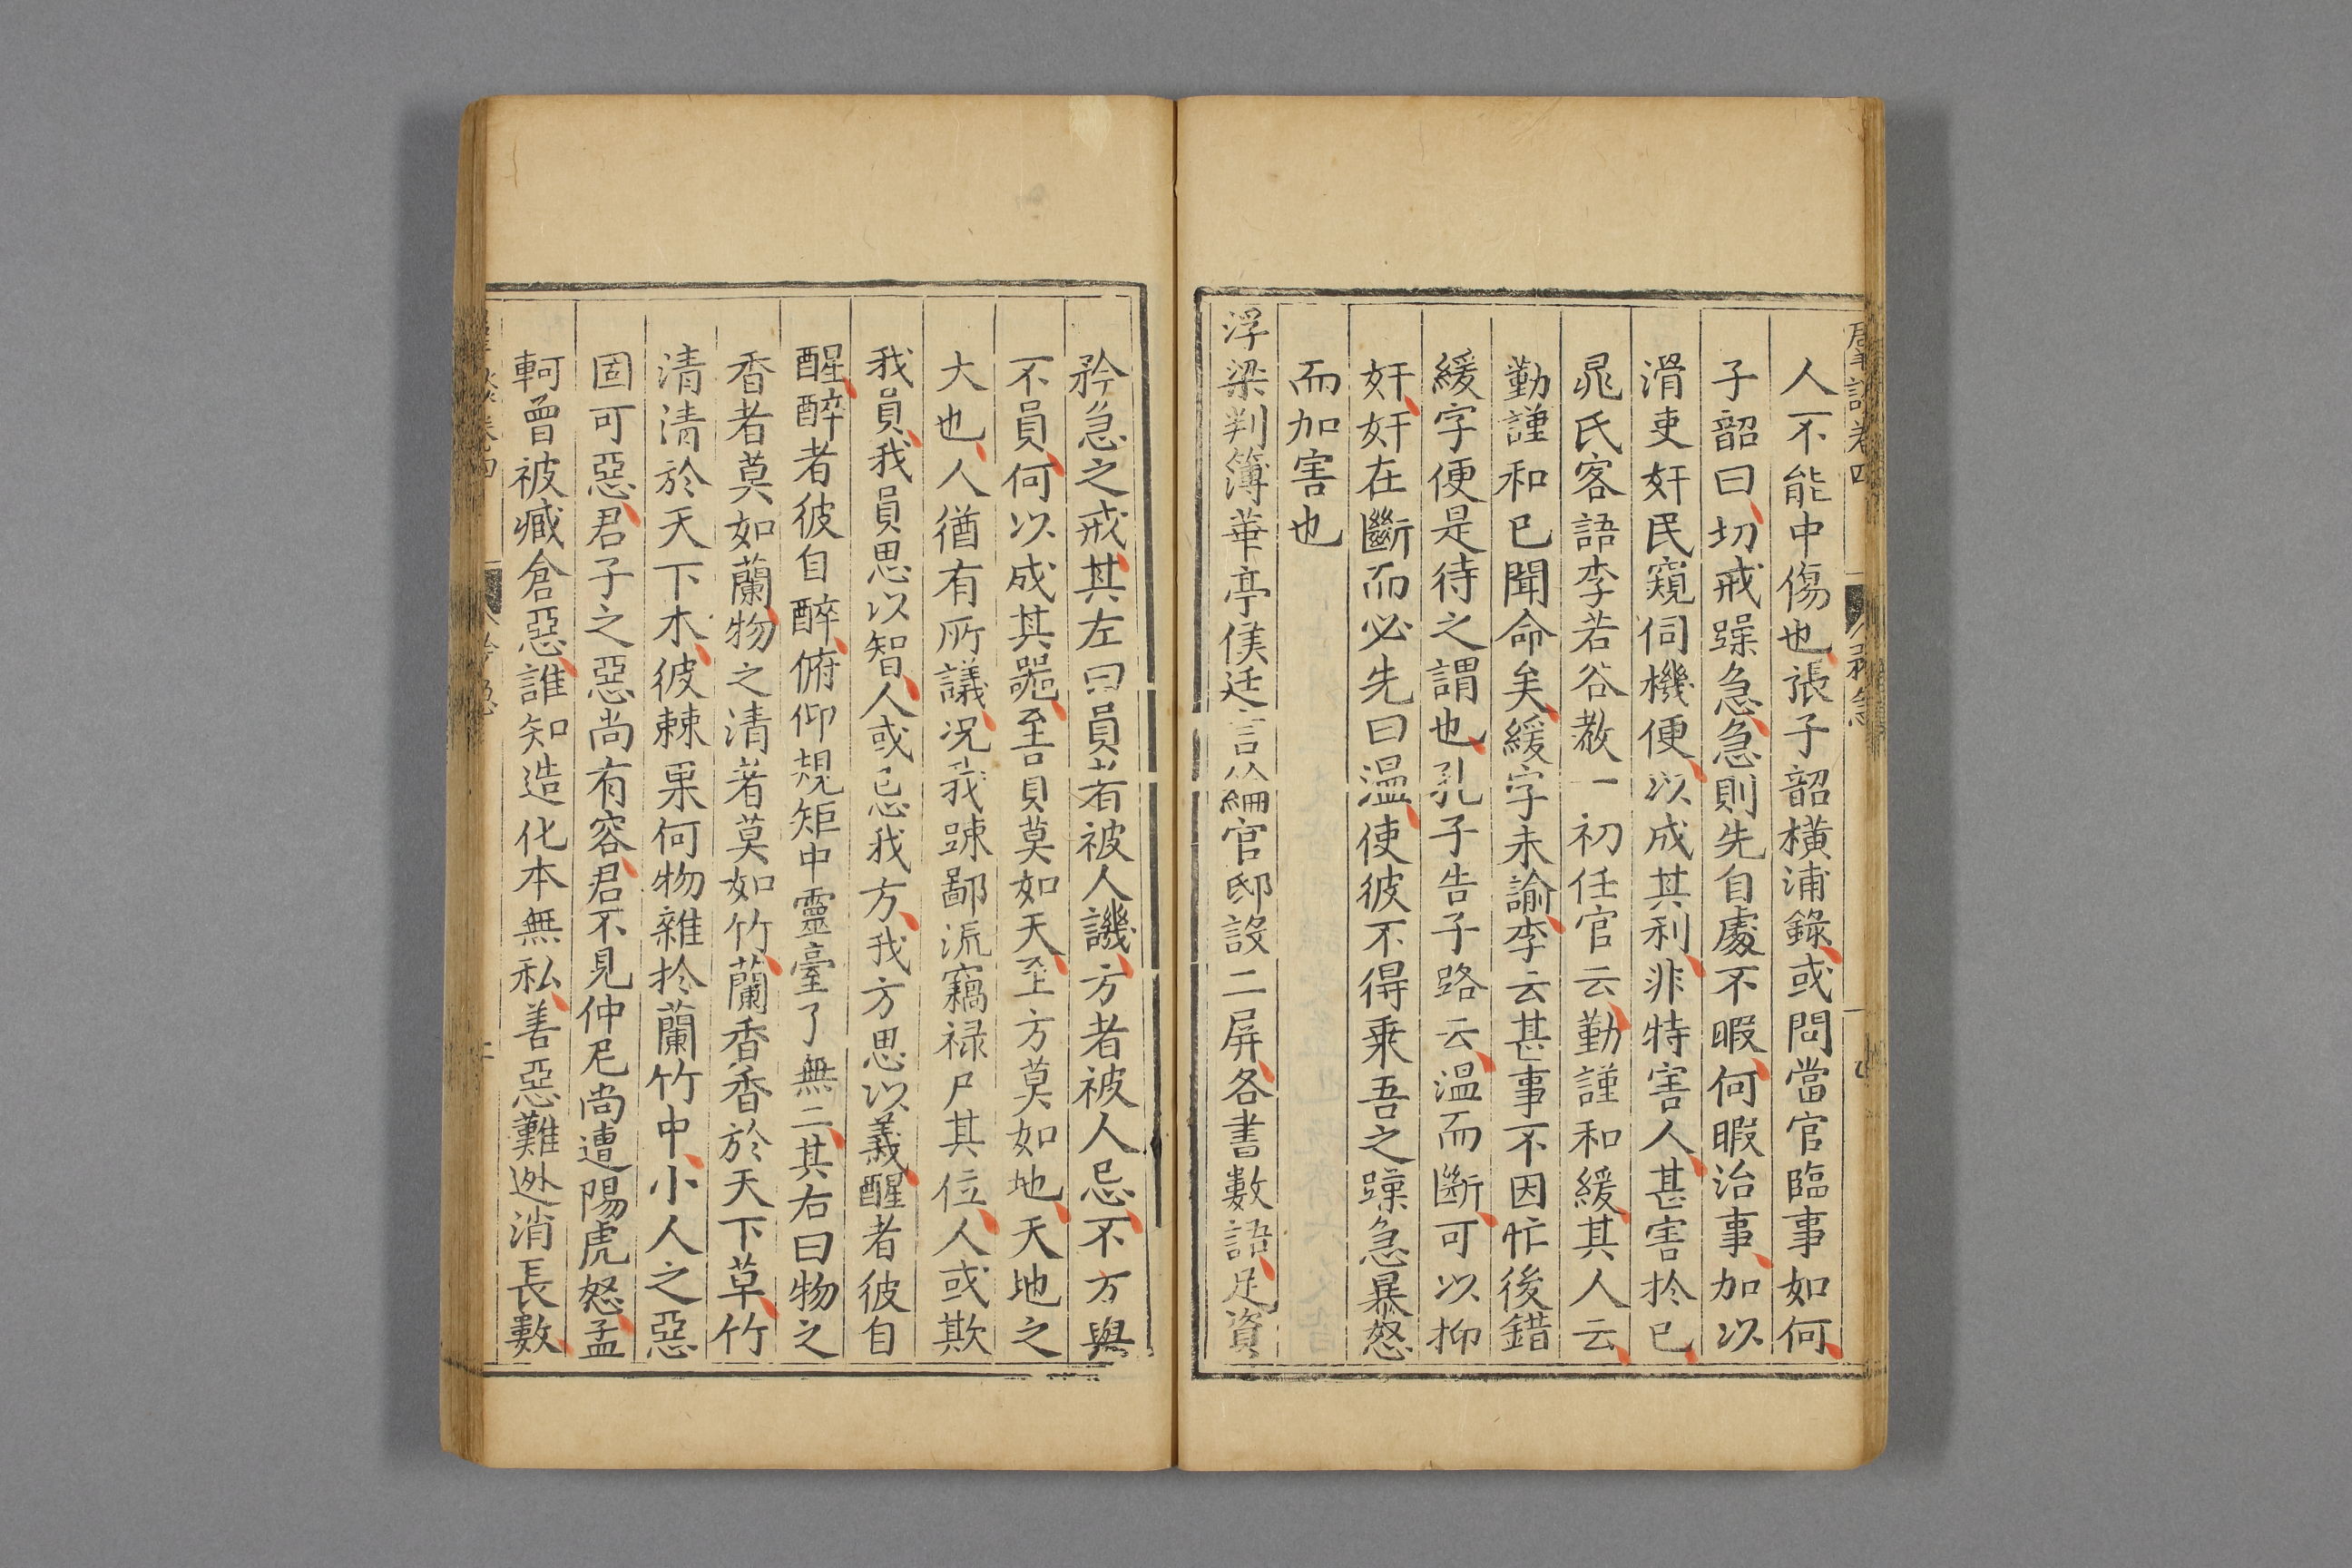 人不能中傷也張子韶橫浦錄或問當官臨事如何
子韶曰切戒躁急急則先自處不暇何暇治事加以
滑吏奸民窺伺機便以成其利非特害人甚害扵已
晁氏客語李若谷教一初任官云勤謹和緩其人云
勤謹和已聞命矣緩字未諭李云甚事不因忙後錯
緩字便是待之謂也孔子告子路云溫而斷可以抑
奸奸在斷而必先曰溫使彼不得乘吾之躁急暴怒
而加害也
浮梁判簿華亭侯廷言綸官邸設二屏各書數語足資
矜急之戒其左曰員者被人譏方者被人忌不方與
不員何以成其器至員莫如天至方莫如地天地之
大也人猶有所議况我踈鄙流竊禄尸其位人或欺
我員我員思以智人或忌我方我方思以義醒者彼自
醒醉者彼自醉俯仰規矩中靈臺了無二其右曰物之
香者莫如蘭物之清者莫如竹蘭香香於天下草竹
清清於天下木彼棘果何物雜扵蘭竹中小人之惡
固可惡君子之惡尚有容君不見仲尼尚遭陽虎怒孟
軻曾被臧倉惡誰知造化本無私善惡難迯消長數